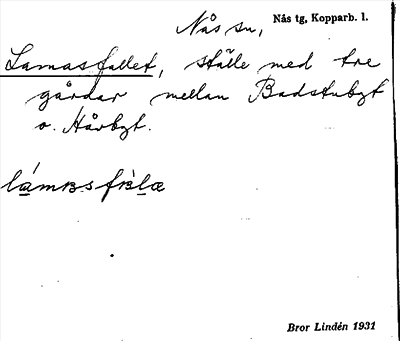 Nås sn, Nås tg, Kopparb. l.
Lamasfallet, ställe med tre
gårdar mellan Badstubyt
o. Håvbyt.
Bror Lindén 1931